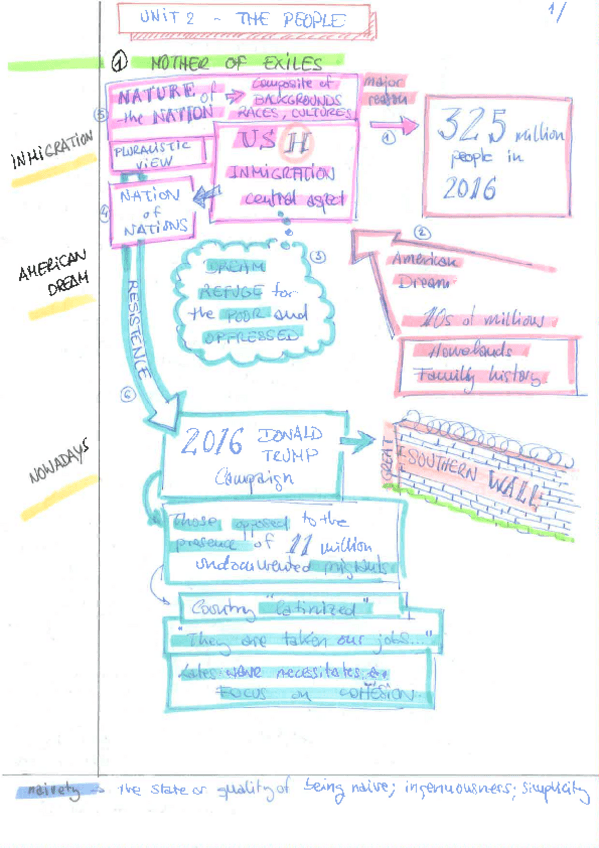 1/
UNIT 2 - THE PEOPLE
① MOTHER OF EXILES
INMIGRATION
AMERICAN
DREAM
NOWADAYS
⑤ NATURE of
the NATION
Composite of
BACKGROUNDS
RACES, CULTURES
major
reason
①
325 million
people in
2016
PLURALISTIC
VIEW
US H
INMIGRATION
central aspect
④ NATION
of
NATIONS
②
American
Dream
10s of millions
Homelands
Family history
③
DREAM
REFUGE for
the POOR and
OPPRESSED
RESISTENCE
⑥
2016 DONALD
TRUMP
Campaign
GREAT
SOUTHERN WALL
Those opposed to the
presence of 11 million
undocumented migrants
Country "latinized"
"They are taken our jobs..."
wave necessitates a
FOCUS on COHESION
naivety → the state or quality of being naive; ingenuousness; simplicity